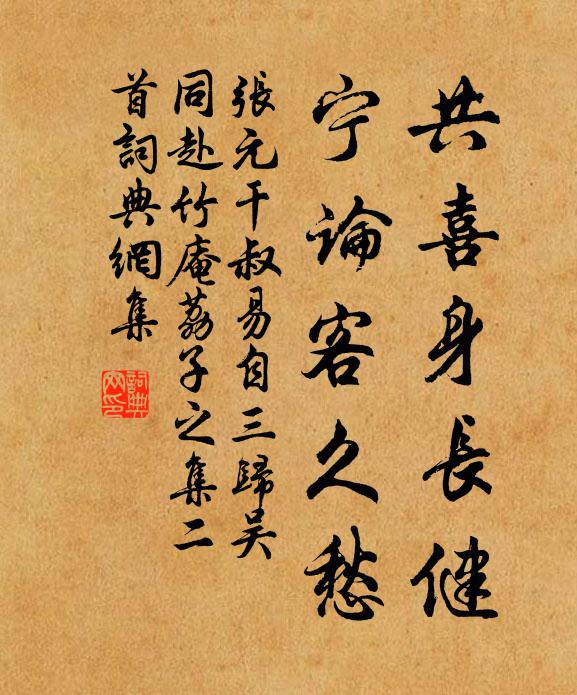 共喜身長健
宁論客久愁
張元干叔易自三歸吴
同赴竹庵荔子之集二
首詞典網集
詞典
网印